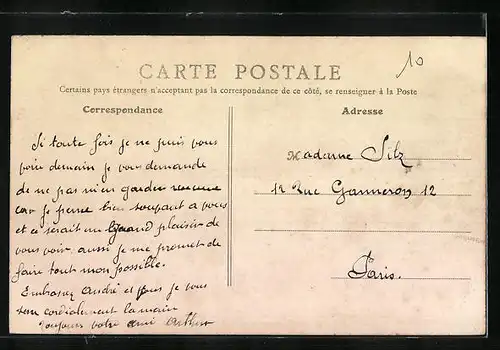 10
CARTE POSTALE
Certains pays étrangers n'acceptant pas la correspondance de ce côté, se renseigner à la Poste
Correspondance
Si toute fois je ne puis vous
voir demain je vous demande
de ne pas m'en garder
car je pense bien souvent a vous
et ce serait un grand plaisir de
vous voir aussi je me promet de
faire tout mon possible.
Embrassez André et puis je vous
serre cordialement la main
toujours votre ami Arthur
Adresse
Madame Silz
12 Rue Ganneron 12
Paris.